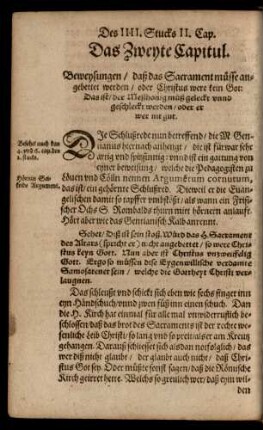 Des IIII. Stucks II. Cap.
Das Zweyte Capitul.
Beweysungen / daß das Sacrament müsse an-
gebettet werden / oder Christus were kein Got:
Das ist / der Meßhönig muß geleckt vnnd
geschleckt werden / oder er
wer nit gut.
Besehet auch den
2. vnd 6. cap. des
1. stucks.
DIe Schlußrede nun betreffend / die M Gen-
tianus hiernach anhengt / die ist fürwar sehr
artig vnd spitzsinnig: vnd ist ein gattung von
eyner beweisung / welche die Pedagogisten zu
Löuen vnd Cölln nennen Argumentum cornutum,
das ist / ein gehörnte Schlußred. Die weil er die Euan-
gelischen damit so tapffer vmbstößt / als wann ein Frü-
scher Ochs S. Rombalds thurn mit hörnern anlauft.
Hört aber wie das Gentianisch Kalb anrennt.
Hörnin Ge-
Argument.
Sehet / Diß ist sein stoß. Würd das H. Sacrament
des Altars (spricht er) nicht angebettet / so were
Christus keyn Gott. Nun aber ist Christus vnzweiffelig
Gott. Ergo so müssen diß Eygenwillische verdamte
Samosatener sein / welche die Gottheyt Christi ver-
laugnen.
Das schleußt vnd schickt sich eben wie sechs finger inn
eyn Händschuch vnnd zwen füß inn einen schuch. Dan
die H. Kirch hat einmal für alle mal vnwiderruflich be-
schlossen daß das brot des Sacraments ist der rechte we-
senliche leib Christi / so lang vnd so preit als er am Kreutz
gehangen. Darauß schliesset sich alsdan notfolglich / das
wer diß nicht glaubt / der glaubt auch nicht / daß Chri-
stus Got sey. Oder müßte sonst sagen / daß die Römische
Kirch geirret hette. Welchs so greulich wer / daß eym wür-
den